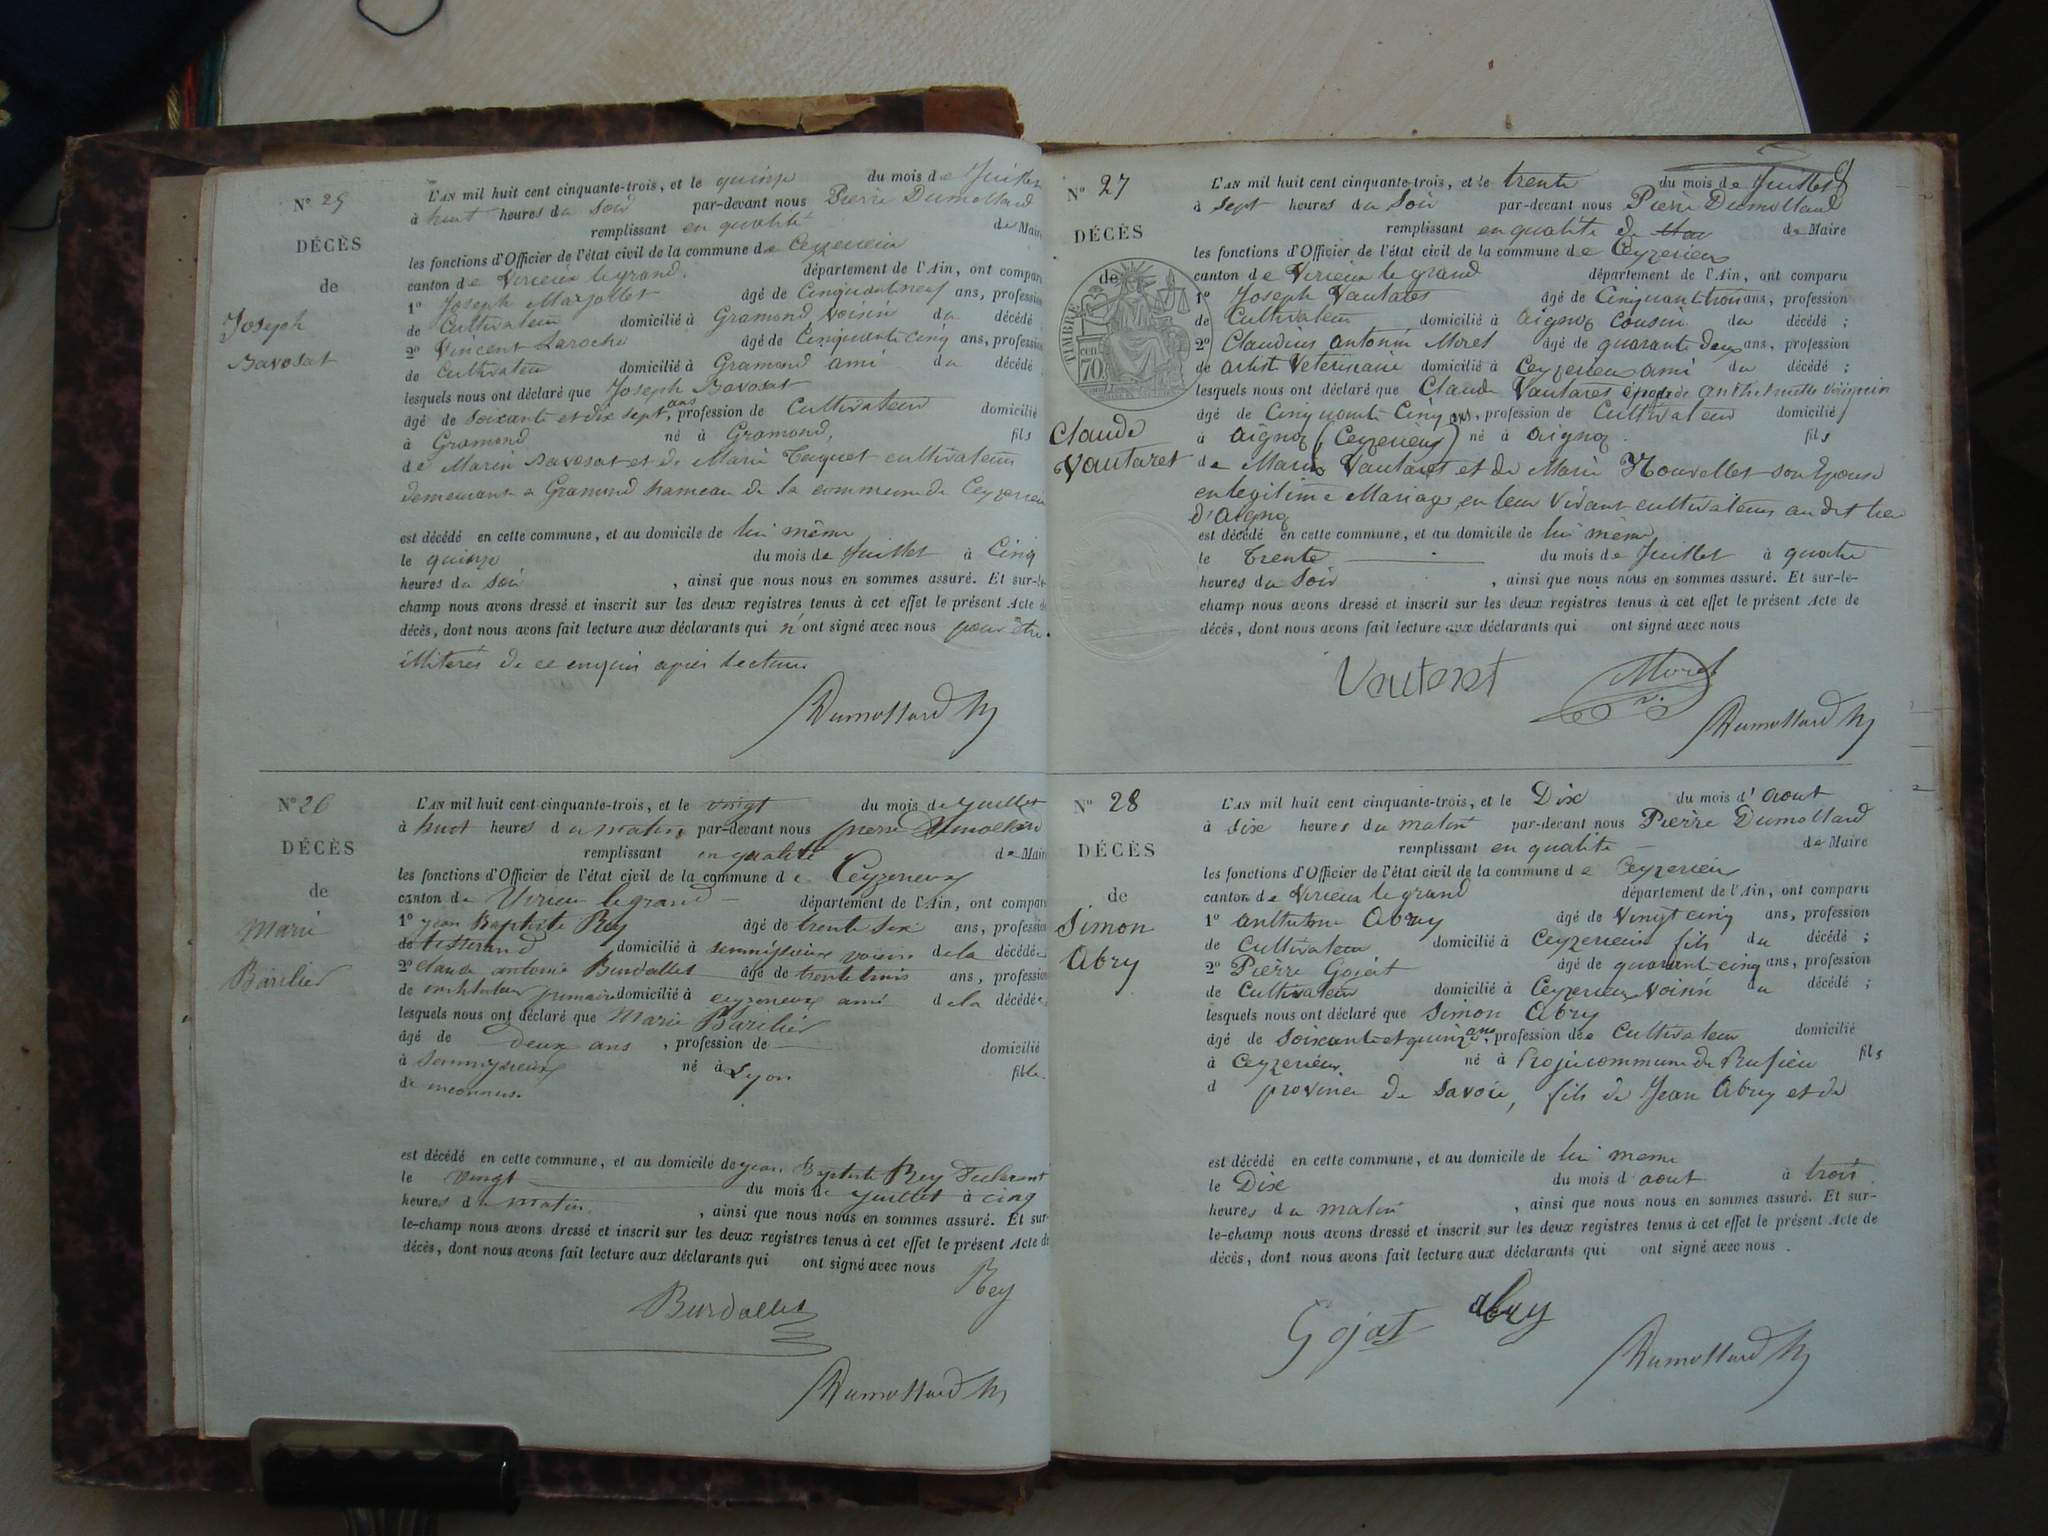 N° 25
DÉCÈS
de
Joseph
Bavosat
L'AN mil huit cent cinquante-trois, et le quinze du mois de Juillet
à huit heures du Soir par-devant nous Pierre Dumollard
remplissant en qualité de Maire
les fonctions d'Officier de l'état civil de la commune de Ceyzerieu
canton de Virieu le grand. département de l'Ain, ont comparu
1° Joseph Marjollet âgé de Cinquante neuf ans, profession
de Cultivateur domicilié à Gramond voisin du décédé ;
2° Vincent Laroche âgé de Cinquante cinq ans, profession
de Cultivateur domicilié à Gramond ami du décédé ;
lesquels nous ont déclaré que Joseph Bavosat
âgé de Soixante et dix sept ans, profession de Cultivateur domicilié
à Gramond né à Gramond, fils
de Marin Bavosat et de Marie Taquet cultivateurs
demeurant a Gramond hameau de la commune de Ceyzerieu
est décédé en cette commune, et au domicile de lui même
le quinze du mois de Juillet à Cinq
heures du Soir , ainsi que nous nous en sommes assuré. Et sur-le-
champ nous avons dressé et inscrit sur les deux registres tenus à cet effet le présent Acte de
décès, dont nous avons fait lecture aux déclarants qui n'ont signé avec nous pour être
illiterés de ce enquis après lecture
Dumollard M
N° 26
DÉCÈS
de
Marie
Barilier
L'AN mil huit cent cinquante-trois, et le vingt du mois de Juillet
à huit heures du matin, par-devant nous pierre Dumollard
remplissant en qualité de Maire
les fonctions d'Officier de l'état civil de la commune de Ceyzerieux
canton de Virieu le grand département de l'Ain, ont comparu
1° jean Baptiste Rey âgé de trente six ans, profession
de tisserand domicilié à voisin de la décédée
2° Claude antoine Burdallet âgé de trente trois ans, profession
de instituteur primaire domicilié à ceyzerieux ami de la décédée
lesquels nous ont déclaré que Marie Barilier
âgé de deux ans , profession de domicilié
à né à Lyon fille
de inconnus.
est décédé en cette commune, et au domicile de jean Baptiste Rey declarant
le vingt du mois de juillet à cinq
heures du matin. , ainsi que nous nous en sommes assuré. Et sur-
le-champ nous avons dressé et inscrit sur les deux registres tenus à cet effet le présent Acte de
décès, dont nous avons fait lecture aux déclarants qui ont signé avec nous
Rey
Burdallet
Dumollard M
N° 27
DÉCÈS
de
TIMBRE
70 cent
Claude
Vautaret
L'AN mil huit cent cinquante-trois, et le trente du mois de Juillet
à Sept heures du Soir par-devant nous Pierre Dumollard
remplissant en qualité de de Maire
les fonctions d'Officier de l'état civil de la commune de Ceyzerieu
canton de Virieu le grand département de l'Ain, ont comparu
1° Joseph Vautaret âgé de Cinquante trois ans, profession
de Cultivateur domicilié à Aignoz cousin du décédé ;
2° Claudius antonin Moret âgé de quarante deux ans, profession
de artist Veterinaire domicilié à Ceyzerieu ami du décédé ;
lesquels nous ont déclaré que Claude Vautaret époux de Anthelmette
âgé de Cinquante Cinq ans, profession de Cultivateur domicilié
à Aignoz (Ceyzerieu) né à Aignoz. fils
de Marin Vautaret et de Marie Nouvellet son Epouse
en legitime Mariage, en leur Vivant cultivateurs au dit lieu
d'Aignoz
est décédé en cette commune, et au domicile de lui même
le Trente du mois de Juillet à quatre
heures du Soir , ainsi que nous nous en sommes assuré. Et sur-le-
champ nous avons dressé et inscrit sur les deux registres tenus à cet effet le présent Acte de
décès, dont nous avons fait lecture aux déclarants qui ont signé avec nous
Vautaret
Moret
Dumollard M
N° 28
DÉCÈS
de
Simon
Abry
L'AN mil huit cent cinquante-trois, et le Dix du mois d'Aout
à Six heures du matin par-devant nous Pierre Dumollard
remplissant en qualité de Maire
les fonctions d'Officier de l'état civil de la commune de Ceyzerieu
canton de Virieu le grand département de l'Ain, ont comparu
1° Anthelme Abry âgé de Vingt cinq ans, profession
de Cultivateur domicilié à Ceyzerieu fils du décédé ;
2° Pierre Gojat âgé de quarante cinq ans, profession
de Cultivateur domicilié à Ceyzerieu Voisin du décédé ;
lesquels nous ont déclaré que Simon Abry
âgé de Soixante et quinze ans, profession de Cultivateur domicilié
à Ceyzerieu né à commune de Rufieu fils
d province de Savoie, fils de Jean Abry et de
est décédé en cette commune, et au domicile de lui meme
le Dix du mois d'aout à trois
heures du matin , ainsi que nous nous en sommes assuré. Et sur-
le-champ nous avons dressé et inscrit sur les deux registres tenus à cet effet le présent Acte de
décès, dont nous avons fait lecture aux déclarants qui ont signé avec nous .
Gojat
abry
Dumollard M